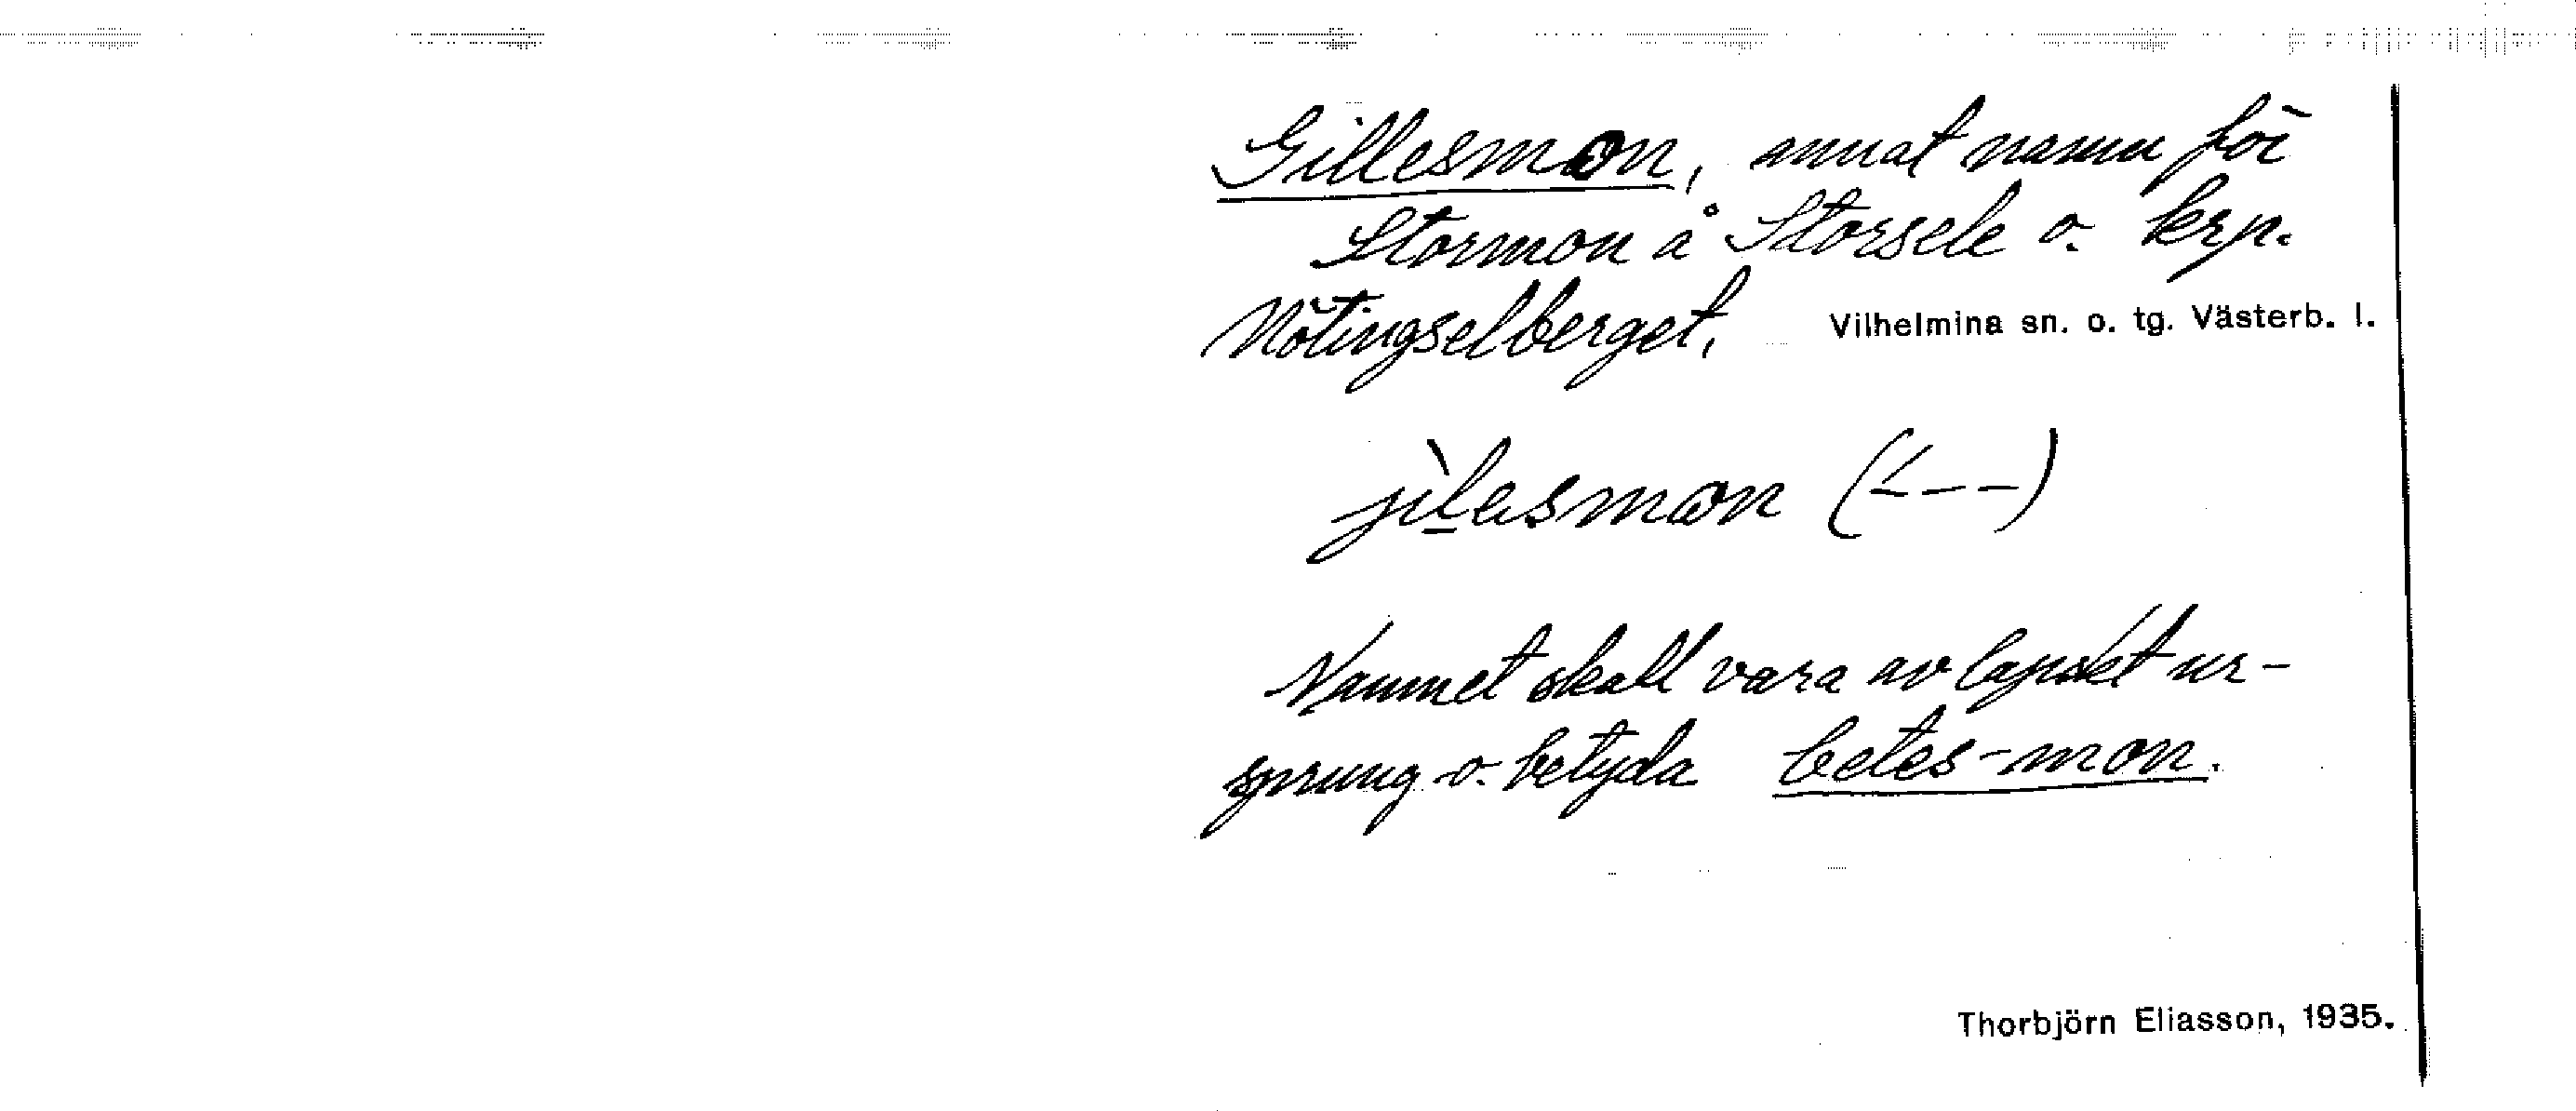 Gillesmon, annat namn för
Stormon å Storsele o. krp.
Nötingselberget, Vilhelmina sn. o. tg. Västerb. l.
jìlesmon (´---)
Namnet skall vara av lapskt ur-
sprung o. betyda betes-mon.
Thorbjörn Eliasson, 1935.